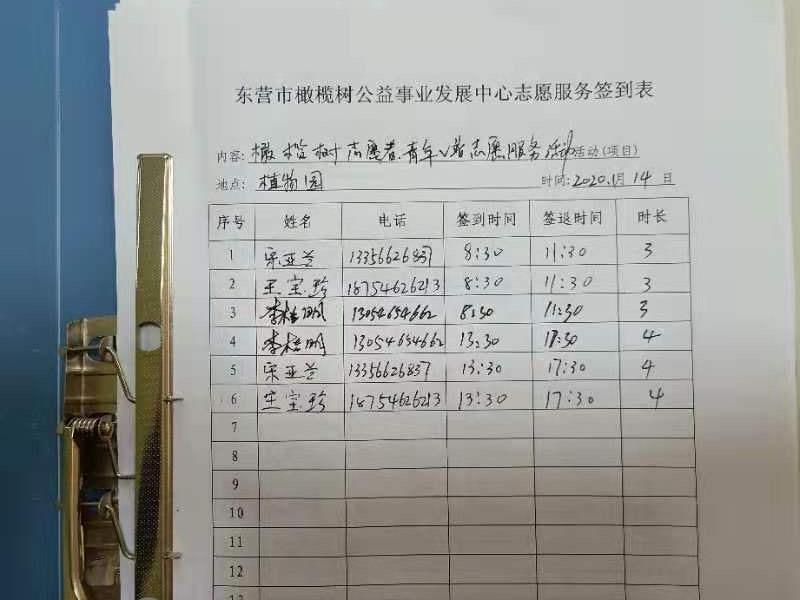 东营市橄榄树公益事业发展中心志愿服务签到表
内容: 橄榄树志愿者青年 志愿服务活动活动(项目)
地点: 植物园 时间: 2020.1月14日
序号 姓名 电话 签到时间 签退时间 时长
1 宋亚兰 13356626837 8:30 11:30 3
2 王宝珍 18754626213 8:30 11:30 3
3 李桂明 13054654662 8:30 11:30 3
4 李桂明 13054654662 13:30 17:30 4
5 宋亚兰 13356626837 13:30 17:30 4
6 王宝珍 18754626213 13:30 17:30 4
7
8
9
10
11
12
13